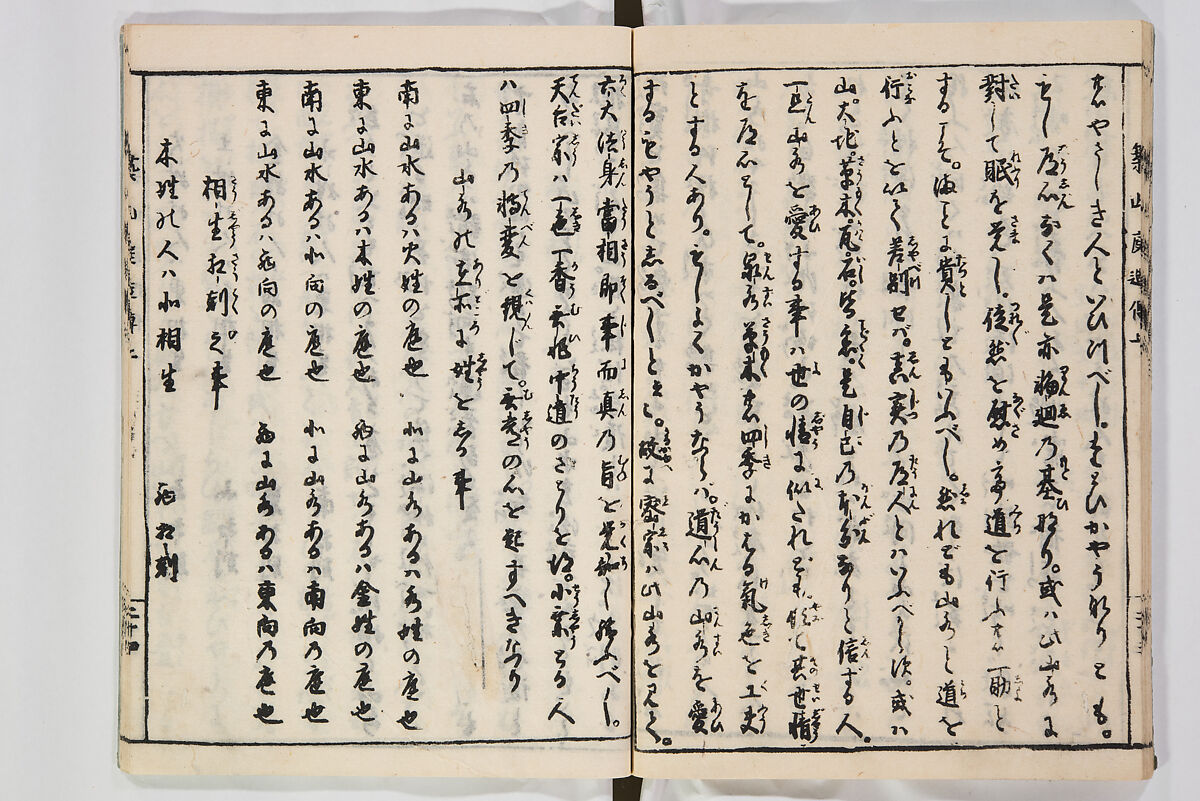 築山庭造傳上
きやさしき人といひつべし。たとひかやうなりとも。
もし道心なくハ是亦輪廻乃基なり。或ハ此山水に
對して眠を覚し。徒然を慰め亭道を行ふを一助と
する事。海とに貴しともいふべし。然れども山水と道を
行ふとをいて差別せバ。真実乃道人とハいふべからず。或ハ
山。大地草木。瓦石。皆悉是自己乃本分なりと信ずる人。
一旦山水を愛する事ハ世の情に似たれども。やがて其世情
を道心として。泉水草木を四季にかはる氣色を工夫
とする人あり。もしよくかやうならハ。道心乃山水を愛
するもやうとしるべしとぞ。故に密家ハ此山水を見て。
六大法身當相即事而真乃旨を覚知し給ふべし。
天台家ハ一色一香無非中道のさとりを得。小乗なる人
ハ四季乃轉変を観じて。無常の心を起すへきなり
山水の在所に姓をしる事
南に山水あるハ火姓の庭也　北に山水あるハ水姓の庭也
東に山水あるハ木姓の庭也　西に山水あるハ金姓の庭也
南に山水あるハ北向の庭也　北に山水あるハ南向乃庭也
東に山水あるハ西向の庭也　西に山水あるハ東向乃庭也
相生相剋之事
木姓の人ハ北相生　西相剋